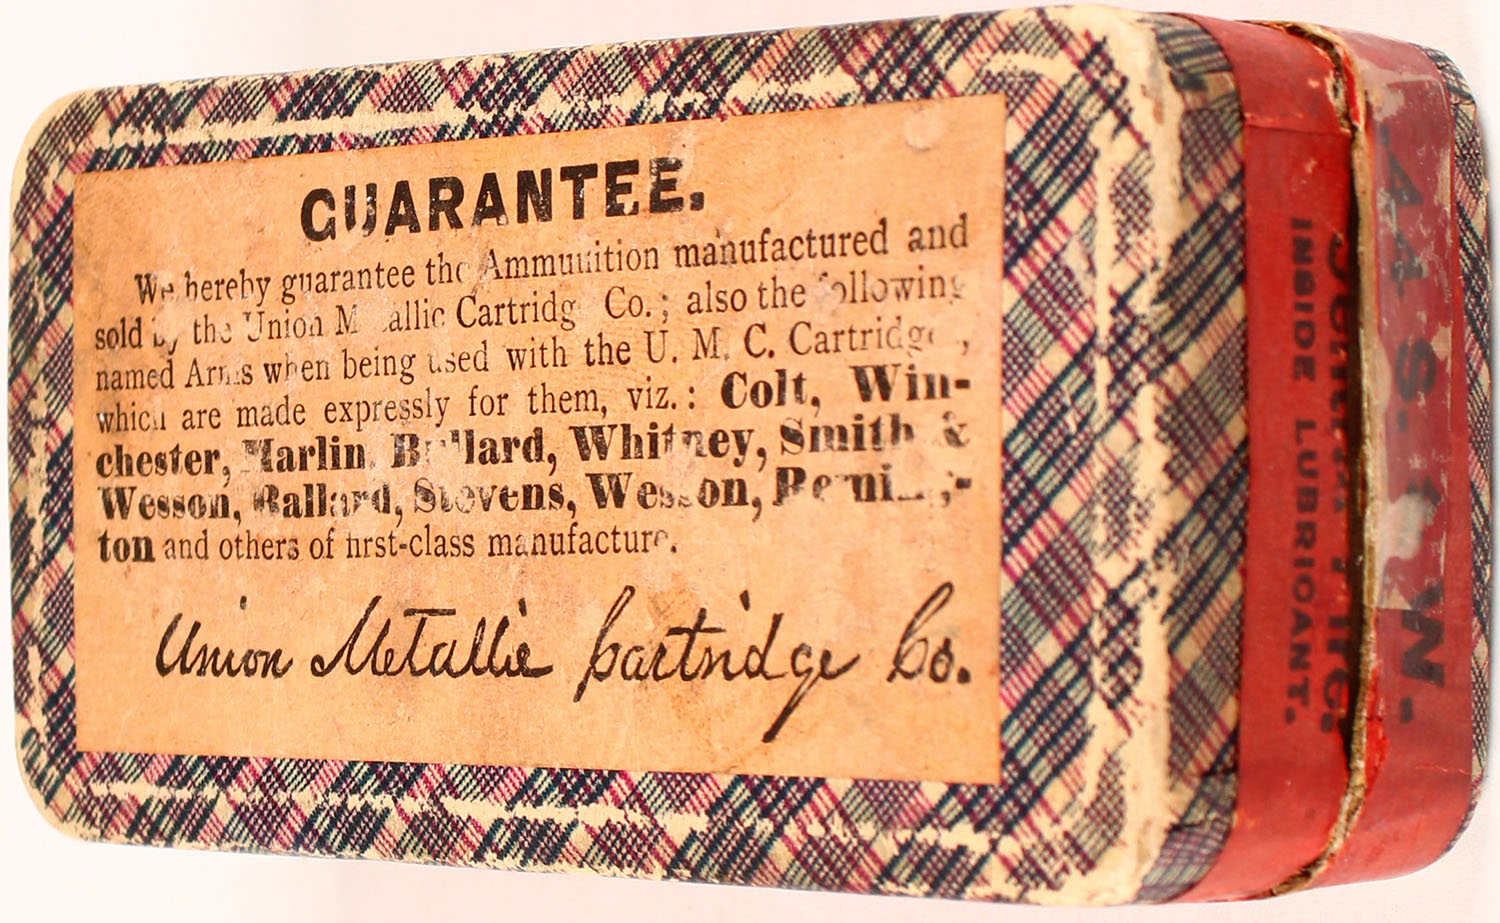 GUARANTEE.
We hereby guarantee the Ammunition manufactured and
sold by the Union Metallic Cartridge Co.; also the following
named Arms when being used with the U. M. C. Cartridges,
which are made expressly for them, viz.: Colt, Win-
chester, Marlin, Bullard, Whitney, Smith &
Wesson, Ballard, Stevens, Wesson, Reming-
ton and others of first-class manufacture.
Union Metallic Cartridge Co.
44 S. & W.
Central Fire.
INSIDE LUBRICANT.